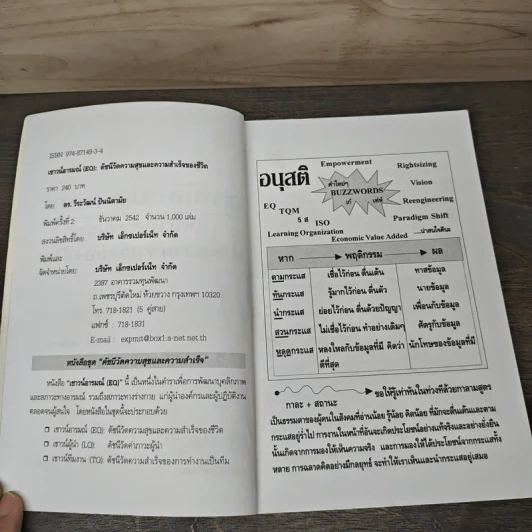 ISBN 974-87149-3-4
เชาวน์อารมณ์ (EQ): ดัชนีวัดความสุขและความสำเร็จของชีวิต
ราคา 240 บาท
โดย ดร. วีระวัฒน์ ปันนิตามัย
พิมพ์ครั้งที่ 2 ธันวาคม 2542 จำนวน 1,000 เล่ม
สงวนลิขสิทธิ์โดย บริษัท เอ็กซเปอร์เน็ท จำกัด
พิมพ์และ
จัดจำหน่ายโดย: บริษัท เอ็กซเปอร์เน็ท จำกัด
2387 อาคารรวมทุนพัฒนา
ถ.เพชรบุรีตัดใหม่ ห้วยขวาง กรุงเทพฯ 10320
โทร 718-1821 (5 คู่สาย)
แฟกซ์ : 718-1831
E-mail : expmit@box1.a-net.net.th
หนังสือชุด "ดัชนีวัดความสุขและความสำเร็จ"
หนังสือ "เชาวน์อารมณ์ (EQ)" นี้ เป็นหนึ่งในตำราเพื่อการพัฒนาบุคลิกภาพ
และสภาวะทางอารมณ์ รวมถึงสภาวะทางร่างกาย แก่ผู้นำองค์กรและผู้ปฏิบัติงาน
ตลอดจนผู้สนใจ โดยหนังสือในชุดนี้จะประกอบด้วย
เชาวน์อารมณ์ (EQ): ดัชนีวัดความสุขและความสำเร็จของชีวิต
เชาวน์ผู้นำ (LQ): ดัชนีวัดค่าภาวะผู้นำ
เชาวน์ทีมงาน (TQ): ดัชนีวัดความสำเร็จของการทำงานเป็นทีม
อนุสติ
Empowerment
Rightsizing
คำใหม่ๆ
BUZZWORDS
เก๋ เท่ห์
Vision
EQ
TQM
5 ส
ISO
Reengineering
Paradigm Shift
Learning Organization
Economic Value Added
...น่าสนใจดีนะ
หาก พฤติกรรม ผล
ตามกระแส เชื่อไว้ก่อน ตื่นเต้น ทาสข้อมูล
ทันกระแส รู้มากไว้ก่อน ตื่นตัว นายข้อมูล
นำกระแส ย่อยไว้ก่อน ตื่นด้วยปัญญา เพื่อนกับข้อมูล
สวนกระแส ไม่เชื่อไว้ก่อน ทำอย่างเดิมๆ ศัตรูกับข้อมูล
หลุดกระแส หลงใหลกับข้อมูลที่มี คิดว่า นักโทษของข้อมูลที่มี
ดีที่สุด
ขอให้รู้เท่าทันในห่วงที่ด้วยกาลามสูตร
กาละ + สถานะ
เป็นธรรมดาของผู้คนในสังคมที่อ่านน้อย รู้น้อย คิดน้อย ที่มักจะตื่นเต้นและตาม
กระแสอยู่ร่ำไป การงานในหน้าที่อันจะเกิดประโยชน์อย่างแท้จริงและอย่างยั่งยืน
นั้นเกิดจากการมองให้เห็นความจริง และการมองให้ได้ประโยชน์จากกระแสทั้ง
หลาย การฉลาดคิดอย่างมีกลยุทธ์ จะทำให้เราเห็นและนำกระแสอยู่เสมอ